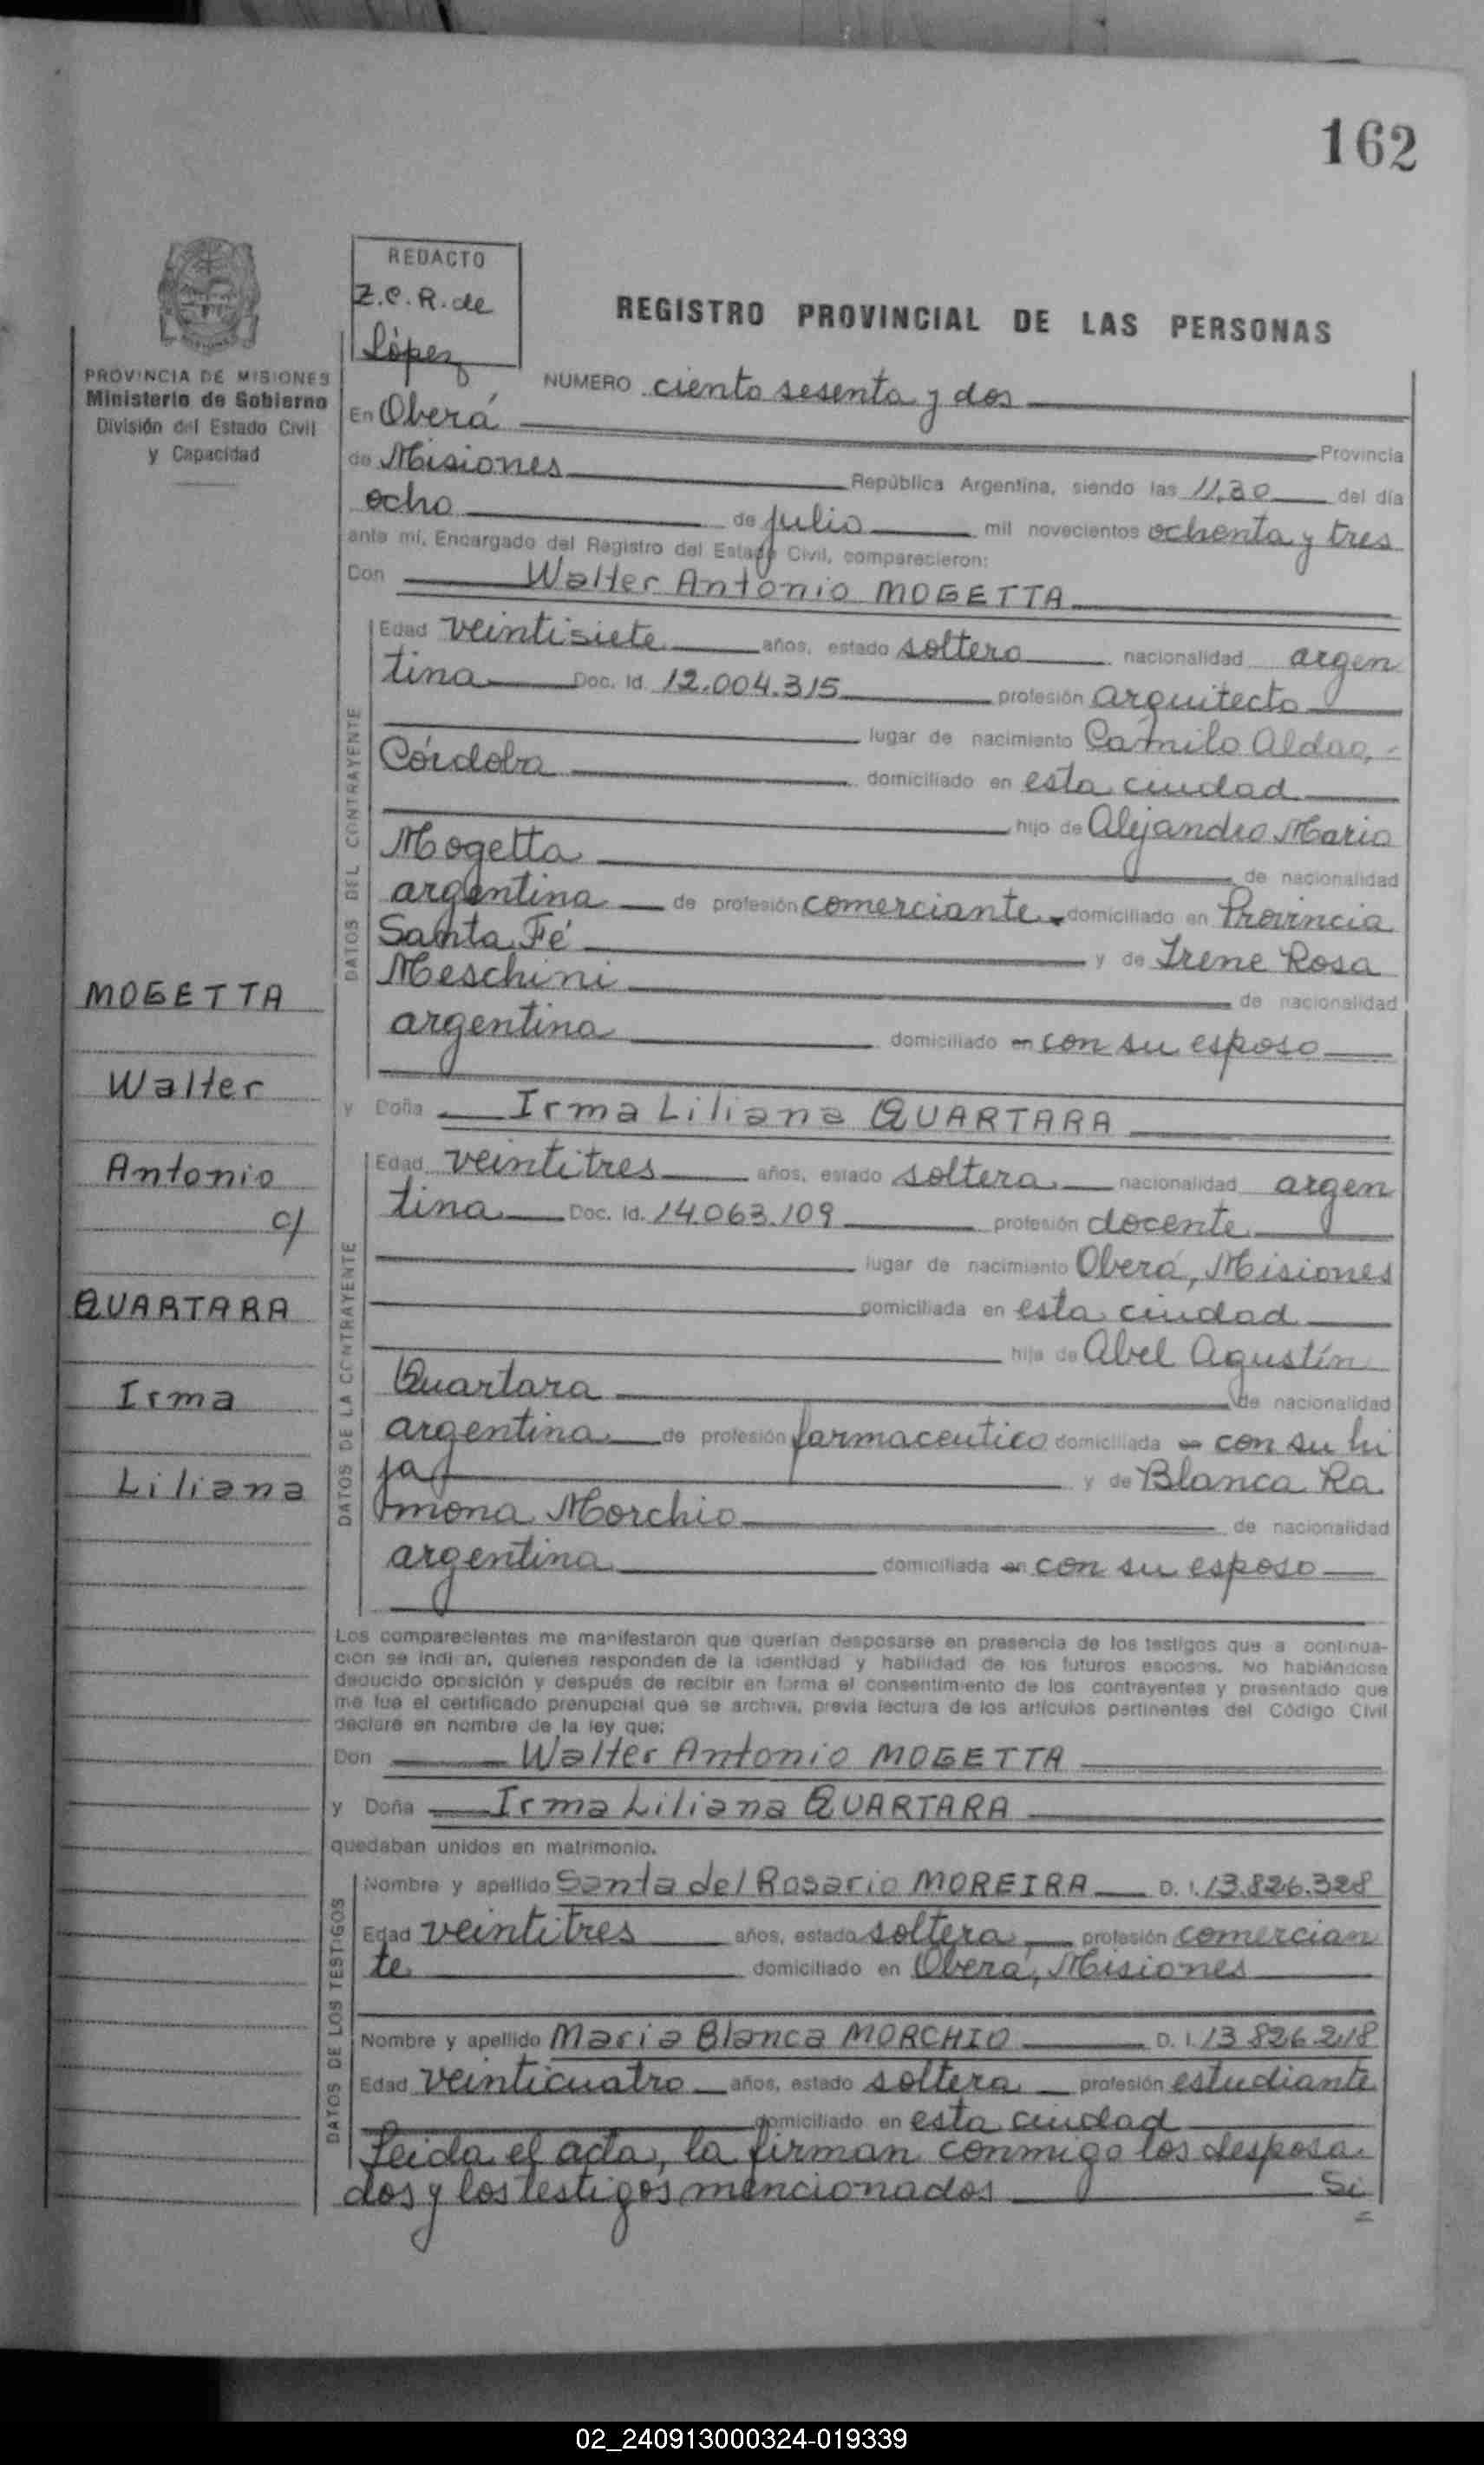 162
REDACTO
Z.C.R. de
López
REGISTRO PROVINCIAL DE LAS PERSONAS
PROVINCIA DE MISIONES
Ministerio de Gobierno
División del Estado Civil
y Capacidad
NUMERO ciento sesenta y dos
En Oberá
Provincia
de Misiones República Argentina, siendo las 11,30 del día
ocho de julio mil novecientos ochenta y tres
ante mí, Encargado del Registro del Estado Civil, comparecieron:
Don Walter Antonio MOGETTA
DATOS DEL CONTRAYENTE
Edad veintisiete años, estado soltero nacionalidad argen
tina Doc. Id. 12.004.315 profesión arquitecto
lugar de nacimiento Camilo Aldao,
Córdoba domiciliado en esta ciudad
hijo de Alejandro Mario
Mogetta de nacionalidad
argentina de profesión comerciante domiciliado en Provincia
Santa Fé y de Irene Rosa
Meschini de nacionalidad
argentina domiciliado en con su esposo
y Doña Irma Liliana QUARTARA
DATOS DE LA CONTRAYENTE
Edad veintitres años, estado soltera nacionalidad argen
tina Doc. Id. 14.063.109 profesión docente
lugar de nacimiento Oberá, Misiones
domiciliada en esta ciudad
hija de Abel Agustín
Quartara de nacionalidad
argentina de profesión farmaceutico domiciliada en con su hi
ja y de Blanca Ra
mona Morchio de nacionalidad
argentina domiciliada en con su esposo
MOGETTA
Walter
Antonio
c/
QUARTARA
Irma
Liliana
Los comparecientes me manifestaron que querían desposarse en presencia de los testigos que a continua-
ción se indi an, quienes responden de la identidad y habilidad de los futuros esposos. No habiéndose
deducido oposición y después de recibir en forma el consentimiento de los contrayentes y presentado que
me fue el certificado prenupcial que se archiva, previa lectura de los artículos pertinentes del Código Civil
declaré en nombre de la ley que:
Don Walter Antonio MOGETTA
y Doña Irma Liliana QUARTARA
quedaban unidos en matrimonio.
DATOS DE LOS TESTIGOS
Nombre y apellido Santa del Rosario MOREIRA D. I. 13.826.328
Edad veintitres años, estado soltera profesión comercian
te domiciliado en Oberá, Misiones
Nombre y apellido Maria Blanca MORCHIO D. I. 13 826 218
Edad veinticuatro años, estado soltera profesión estudiante
domiciliado en esta ciudad
Leida el acta, la firman conmigo los desposa
dos y los testigos mencionados Si
02_240913000324-019339